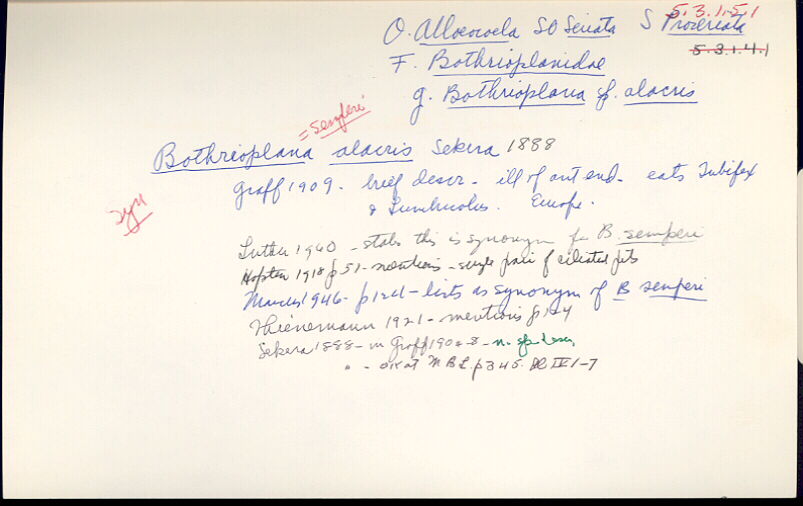 5.3.1.5.1
O. Alloeocoela SO Seriata S Proseriata
5.3.1.4.1
F. Bothrioplanidae
g. Bothrioplana sp. alacris
= semperi
Bothrioplana alacris Sekera 1888
syn
Graff 1909 - brief descr - ill of ant end - eats Tubifex
& Lumbriculus. Europe.
Luther 1960 - states this is synonym for B. semperi
Hofsten 1918 p51 - mentions - single pair of ciliated pits
Marcus 1946 - p 121 - lists as synonym of B semperi
Thienemann 1921 - mentions p 124
Sekera 1888 - in Graff 1904-8 - n. sp. descr
" - at MBL p 345. Pl IV 1-7